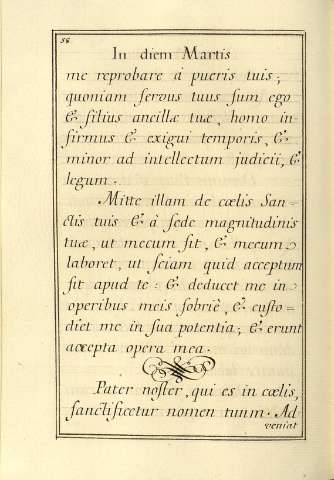 58
In diem Martis
me reprobare à pueris tuis,
quoniam ſervus tuus ſum ego
& filius ancillæ tuæ, homo in=
firmus & exigui temporis, &
minor ad intellectum judicii, &
legum.
Mitte illam de cœlis San=
ctis tuis & à ſede magnitudinis
tuæ, ut mecum ſit, & mecum
laboret, ut ſciam quid acceptum
ſit apud te: & deducet me in
operibus meis ſobriè, & cuſto=
diet me in ſua potentia; & erunt
accepta opera mea.
Pater noſter, qui es in cœlis,
ſanctificetur nomen tuum. Ad
veniat